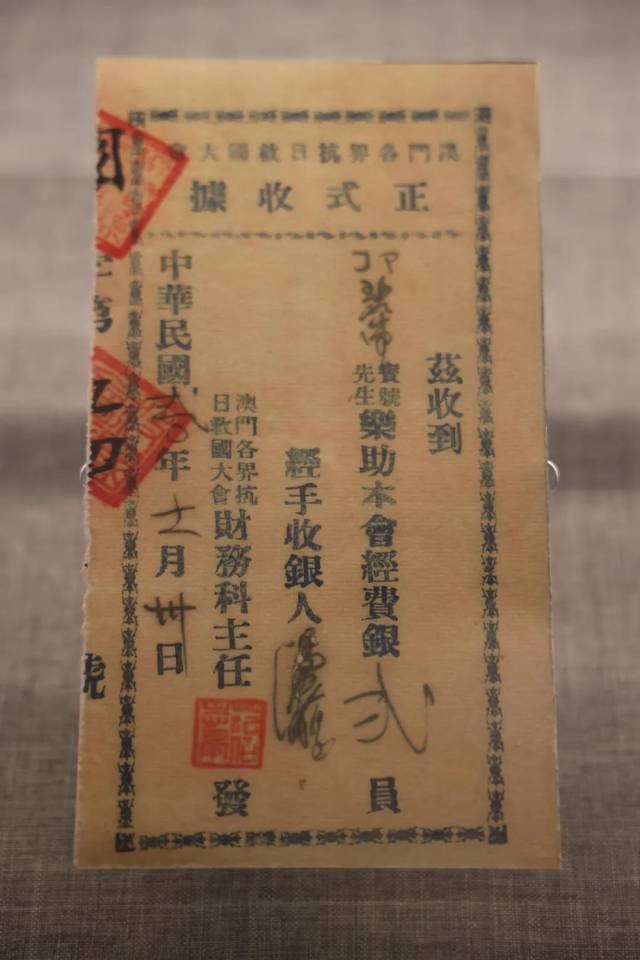 澳門各界抗日救國大會
正式收據
茲收到
寶號
先生
樂助本會經費銀弍員
經手收銀人
澳門各界抗
日救國大會
財務科主任
發
中華民國弍〇年
月卅日
號